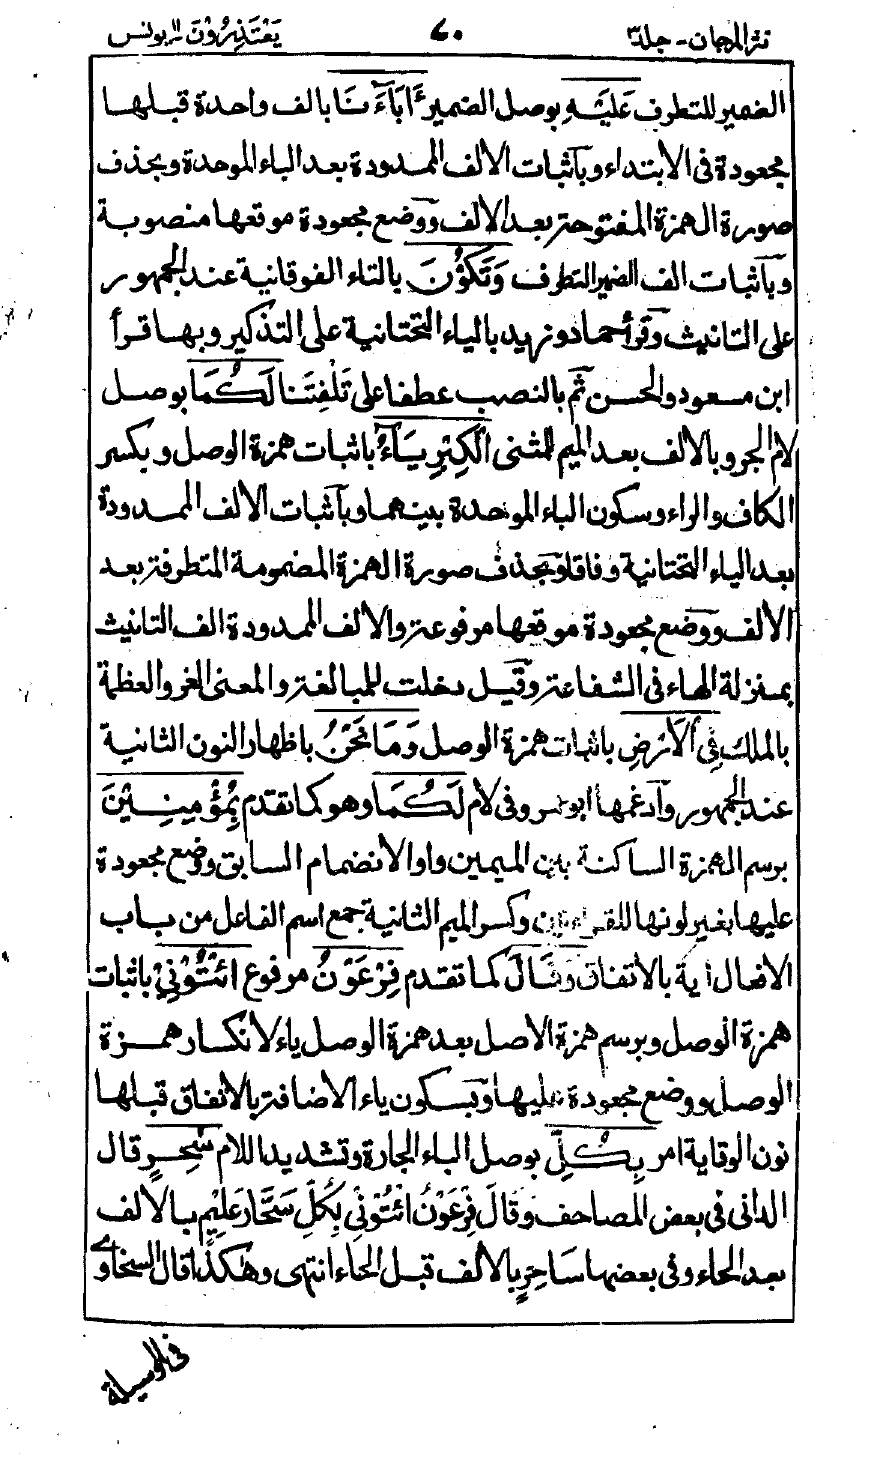 نثر المرجان - جلد ٣
٧٠
يَعْتَذِرُوْنَ ١١ يونس
الضمير للتطرف عَلَيْهِ بوصل الضمير ءَابَآءَنَا بالف واحدة قبلها
مجعودة فى الابتداء وباثبات الالف الممدودة بعد الباء الموحدة وبحذف
صورة الهمزة المفتوحة بعد الالف ووضع مجعودة موقعها منصوبة
وباثبات الف الضمير للتطرف وَتَكُوْنَ بالتاء الفوقانية عند الجمهور
على التانيث وقرأ حماد وزيد بالياء التحتانية على التذكير وبها قرأ
ابن مسعود والحسن ثم بالنصب عطفا على تَلْفِتَنَا لَكُمَا بوصل
لام الجر وبالالف بعد الميم للمثنى الْكِبْرِيَآءُ باثبات همزة الوصل وبكسر
الكاف والراء وسكون الباء الموحدة بينهما وباثبات الالف الممدودة
بعد الياء التحتانية وفاقا وبحذف صورة الهمزة المضمومة المتطرفة بعد
الالف ووضع مجعودة موقعها مرفوعة والالف الممدودة الف التانيث
بمنزلة الهاء فى الشفاعة وقيل دخلت للمبالغة والمعنى العز والعظمة
بالملك فِى الْاَرْضِ باثبات همزة الوصل وَمَا نَحْنُ باظهار النون الثانية
عند الجمهور وادغمها ابو عمرو فى لام لَكُمَا وهو كما تقدم بِمُؤْمِنِيْنَ
برسم الهمزة الساكنة بين الميمين واوا لانضمام السابق ووضع مجعودة
عليها بغير لونها للقراءتين وكسر الميم الثانية جمع اسم الفاعل من باب
الافعال اية بالاتفاق وَقَالَ كما تقدم فِرْعَوْنُ مرفوع ائْتُوْنِيْ باثبات
همزة الوصل وبرسم همزة الاصل بعد همزة الوصل ياء لانكسار همزة
الوصل ووضع مجعودة عليها وبسكون ياء الاضافة بالاتفاق قبلها
نون الوقاية امر بِكُلِّ بوصل الباء الجارة وتشديد اللام سٰحِرٍ قال
الدانى فى بعض المصاحف وَقَالَ فِرْعَوْنُ ائْتُوْنِيْ بِكُلِّ سَحَّارٍ عَلِيْمٍ بالالف
بعد الحاء وفى بعضها سَاحِرٍ بالالف قبل الحاء انتهى وهكذا قال السخاوى
فى الوسيلة